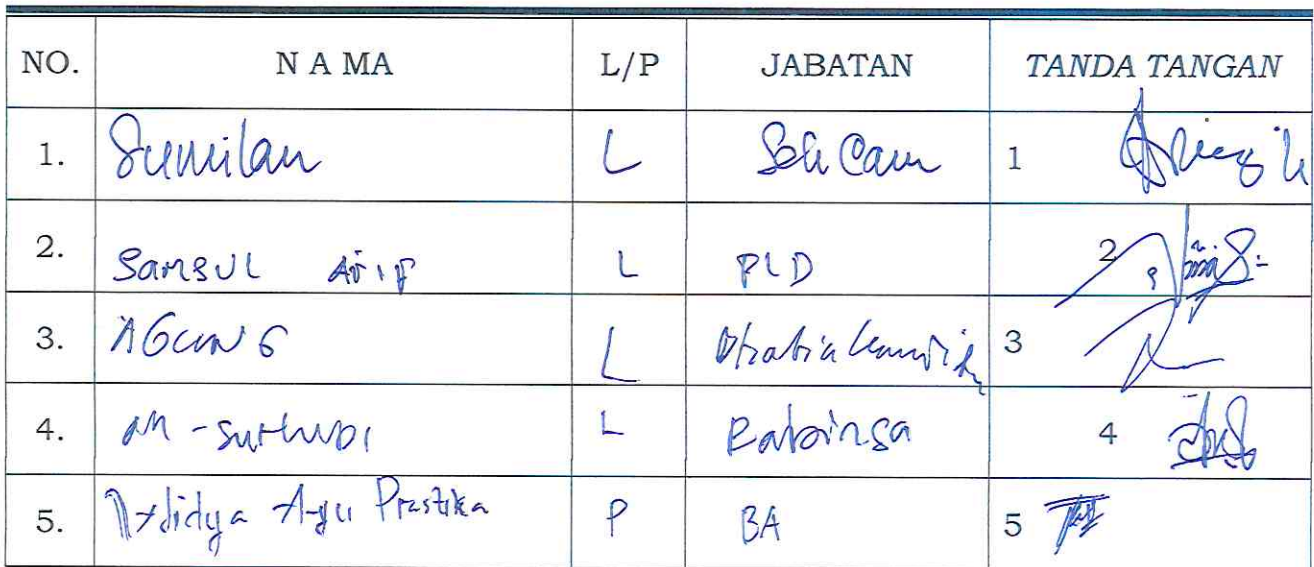 NO. N A M A L/P JABATAN TANDA TANGAN
1. Sumilan L Sek Cam 1
2. SAMSUL ARIF L PLD 2
3. AGUNG L 3
4. L Babinsa 4
5. Ayu Prastika P BA 5